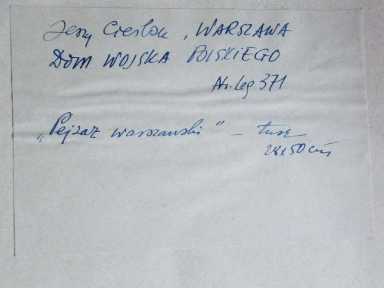 Jerzy Cieślak, WARSZAWA
DOM WOJSKA POLSKIEGO
Nr. leg 371
„Pejzaż warszawski" – tusz
28x50 cm